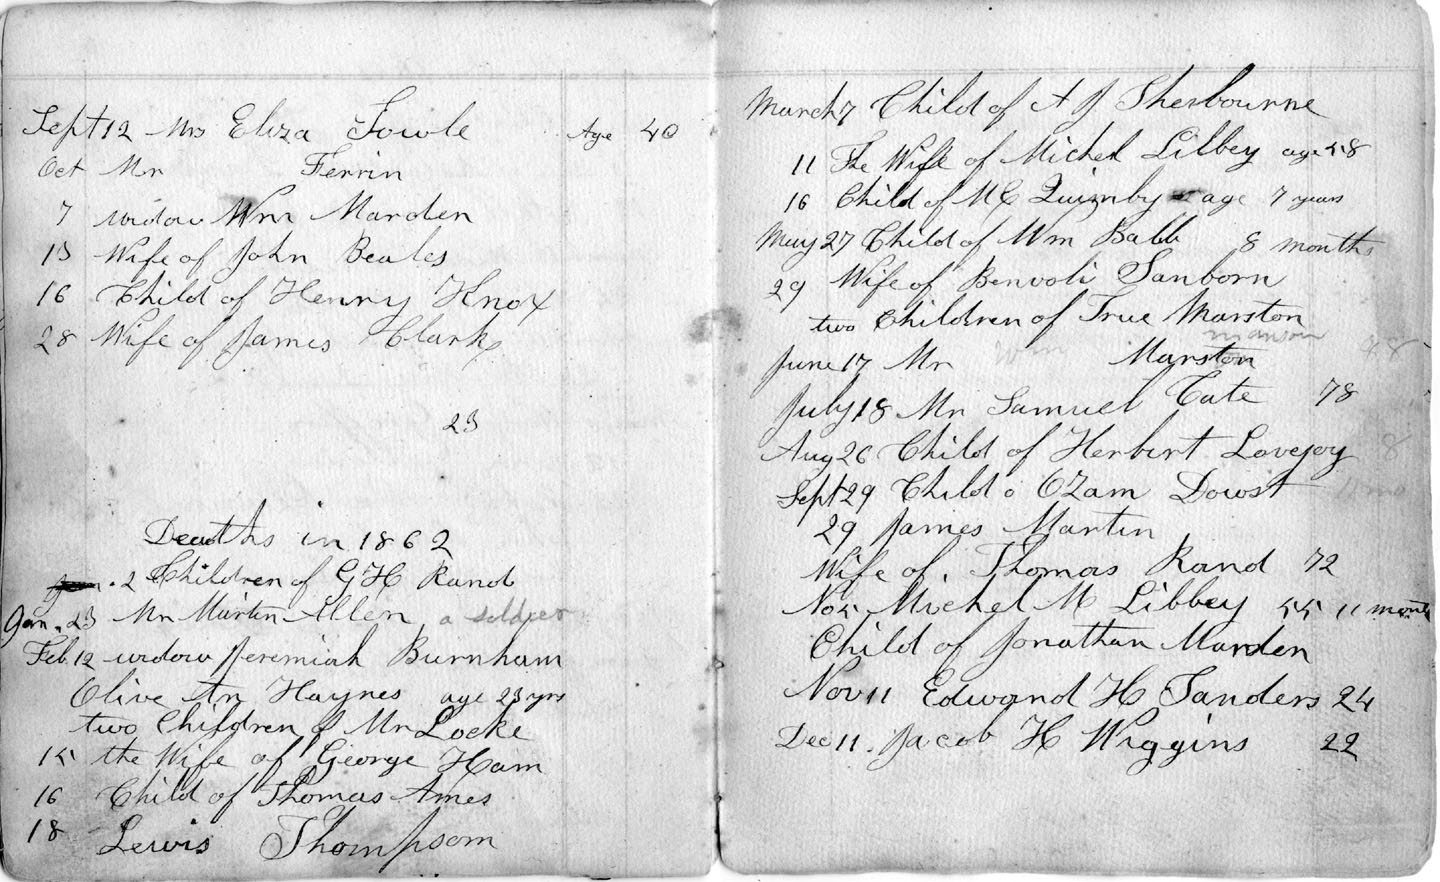 Sept 12 Mrs Eliza Fowle Age 40
Oct Mr Ferrin
7 widow Wm Marden
13 Wife of John Beales
16 Child of Henry Knox
28 Wife of James Clark
23
Deaths in 1862
Jan. 2 Children of G H Rand
Jan. 23 Mr Martin Allen a soldier
Feb. 12 widow Jeremiah Burnham
Olive An Haynes age 23 yrs
two Children of Mr Locke
15 the Wife of George Ham
16 Child of Thomas Ames
18 Lewis Thompson
March 7 Child of A J Sherbourne
11 The Wife of Michel Libbey age 58
16 Child of M C Quimby age 7 years
May 27 Child of Wm Babb 8 months
29 Wife of Benvoli Sanborn
two Children of True Marston
manson
June 17 Mr Wm Marston 98
July 18 Mr Samuel Tate 78
Aug 26 Child of Herbert Lovejoy 8
Sept 29 Child o Ozam Dowst 11 mo
29 James Martin
Wife of Thomas Rand 72
Nov 5 Michel M Libbey 55 11 month
Child of Jonathan Marden
Nov 11 Edward H Sanders 24
Dec 11. Jacob H Wiggins 22